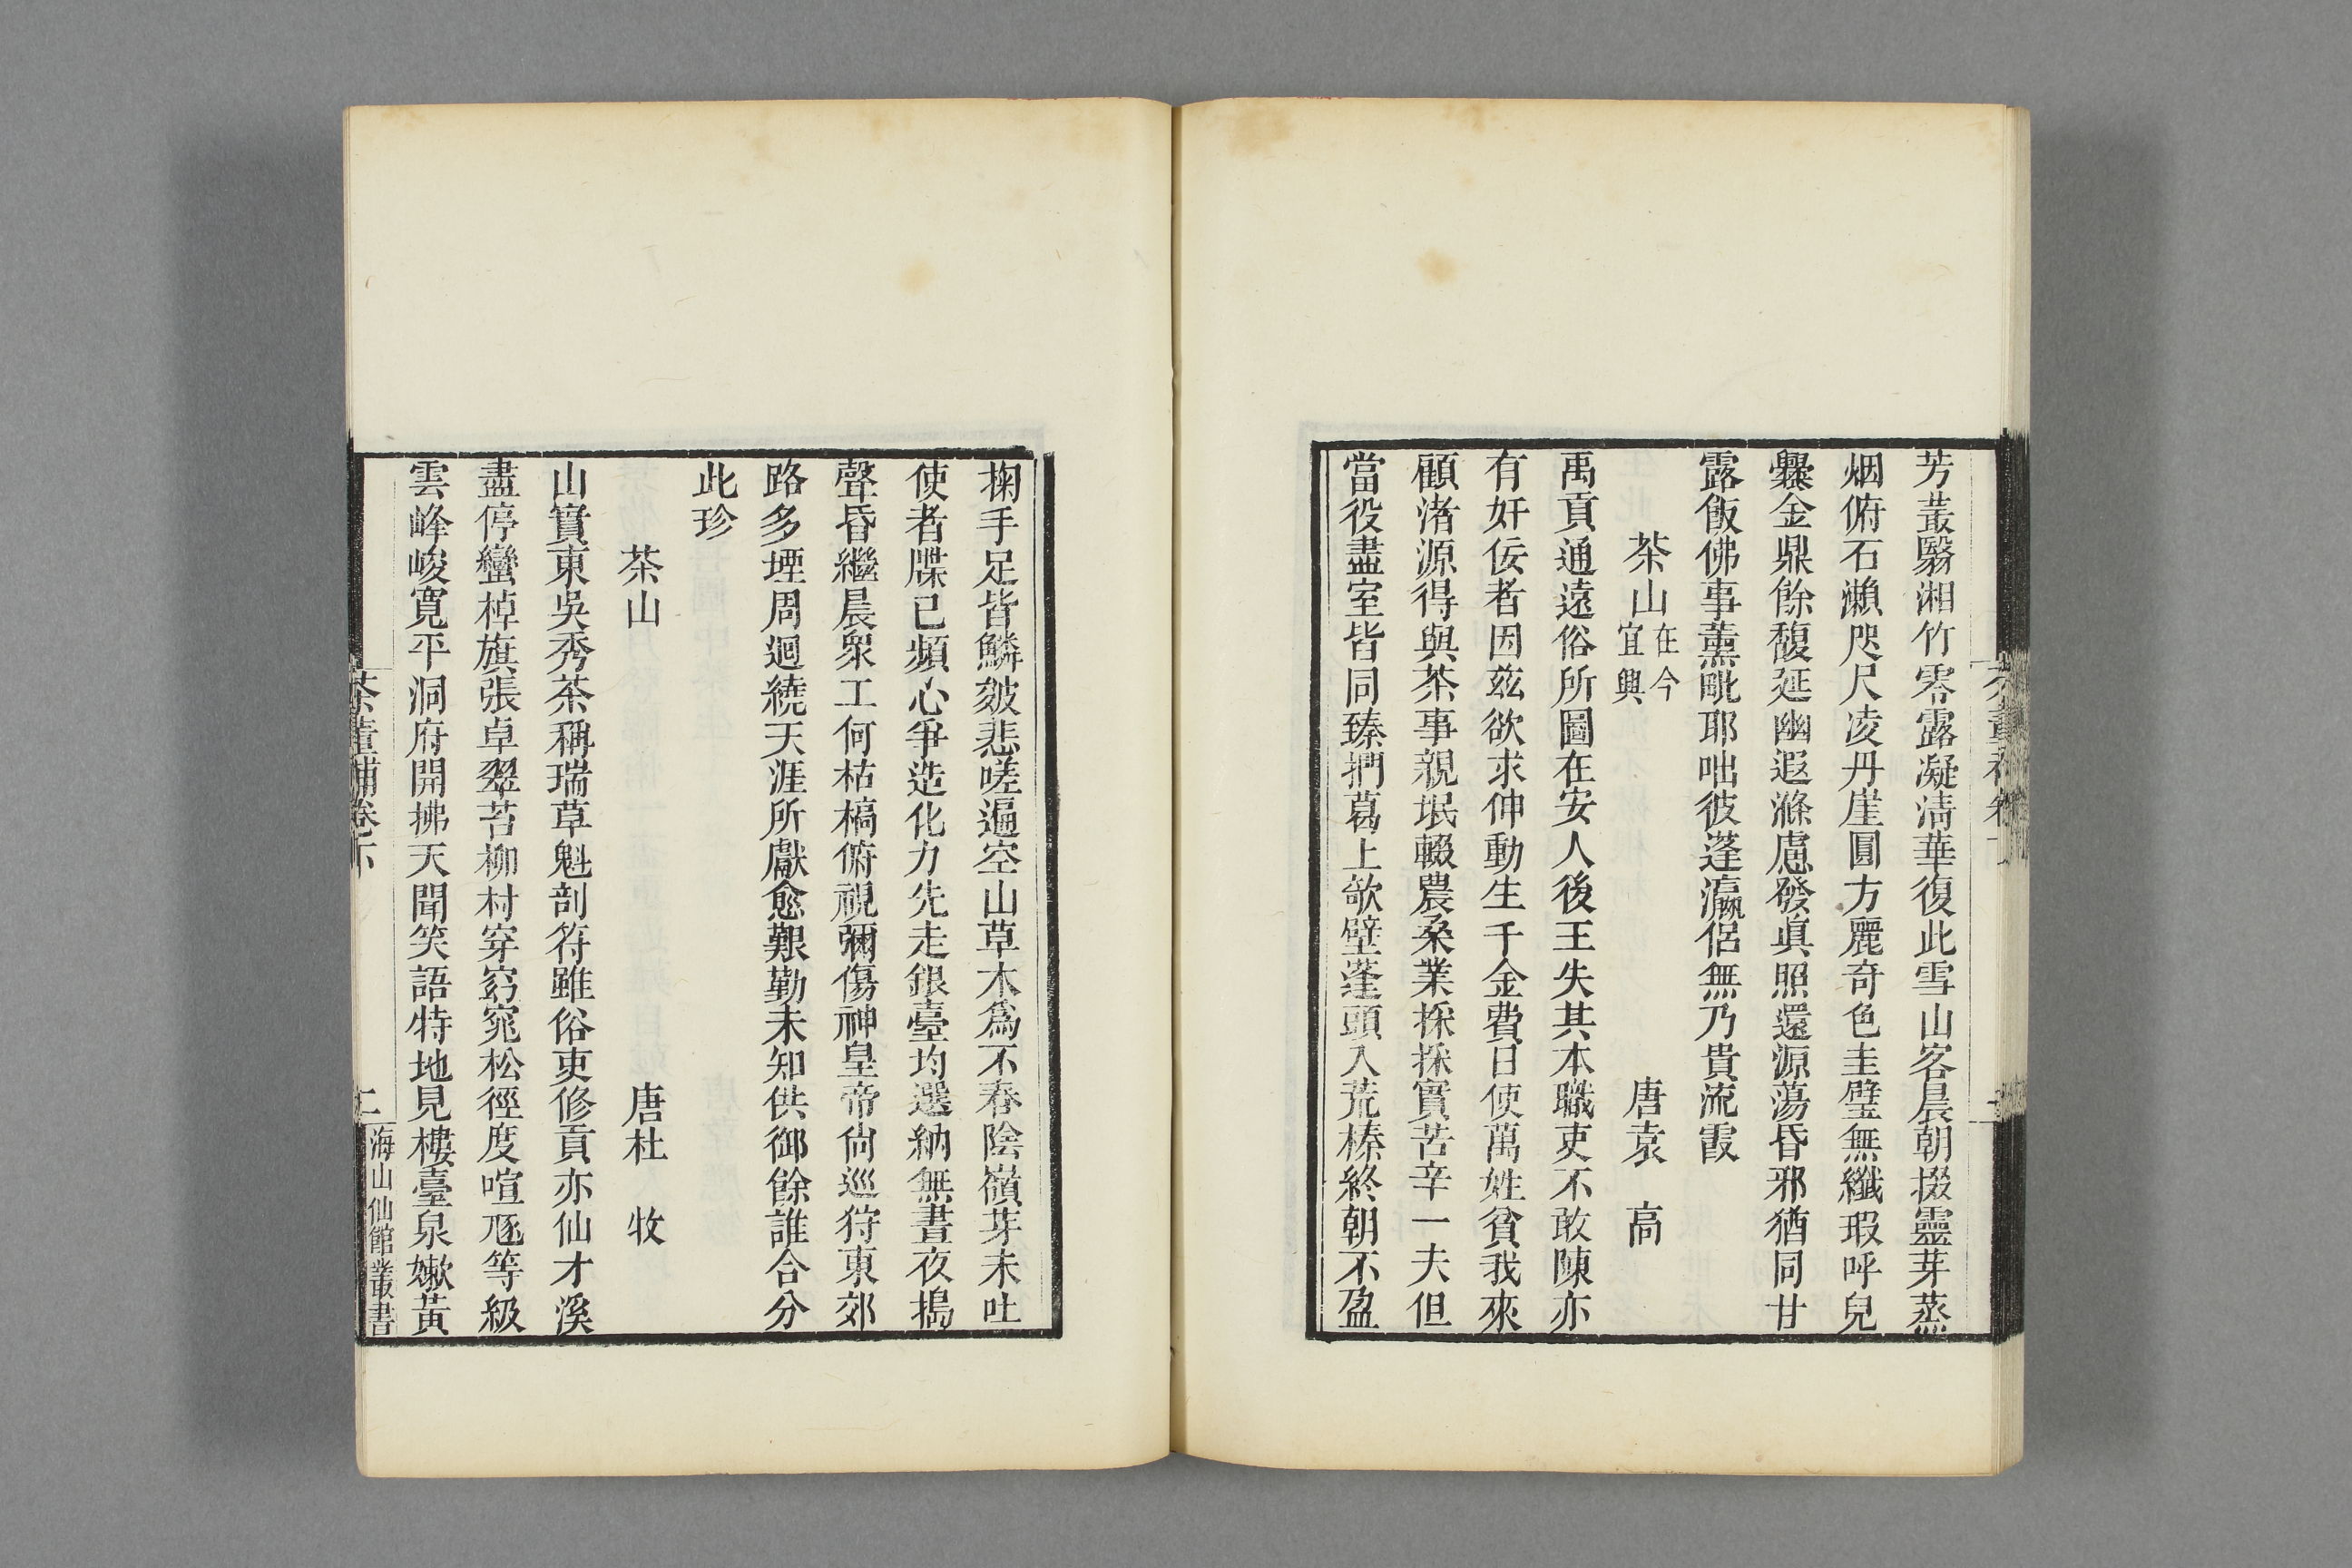 芳叢翳湘竹零露凝清華復此雪山客晨朝掇靈芽蒸
烟俯石瀨咫尺凌丹崖圓方麗奇色圭璧無纖瑕呼兒
爨金鼎餘馥延幽遐滌慮發眞照還源蕩昏邪猶同甘
露飯佛事薰毗耶咄彼蓬瀛侶無乃貴流霞
茶山在今宜興 唐袁 高
禹貢通遠俗所圖在安人後王失其本職吏不敢陳亦
有奸佞者因茲欲求伸動生千金費日使萬姓貧我來
顧渚源得與茶事親氓輟農桑業採採實苦辛一夫但
當役盡室皆同臻捫葛上欹壁蓬頭入荒榛終朝不盈
掬手足皆鱗皴悲嗟遍空山草木爲不春陰嶺芽未吐
使者牒已頻心爭造化力先走銀臺均選納無晝夜搗
聲昏繼晨衆工何枯槁俯視彌傷神皇帝尙巡狩東郊
路多堙周迴繞天涯所獻愈艱勤未知供御餘誰合分
此珍
茶山 唐杜 牧
山實東吳秀茶稱瑞草魁剖符雖俗吏修貢亦仙才溪
盡停蠻棹旗張卓翠苔柳村穿窈窕松徑度喧豗等級
雲峰峻寬平洞府開拂天聞笑語特地見樓臺泉嫩黃
茶董補卷下 二 海山仙館叢書